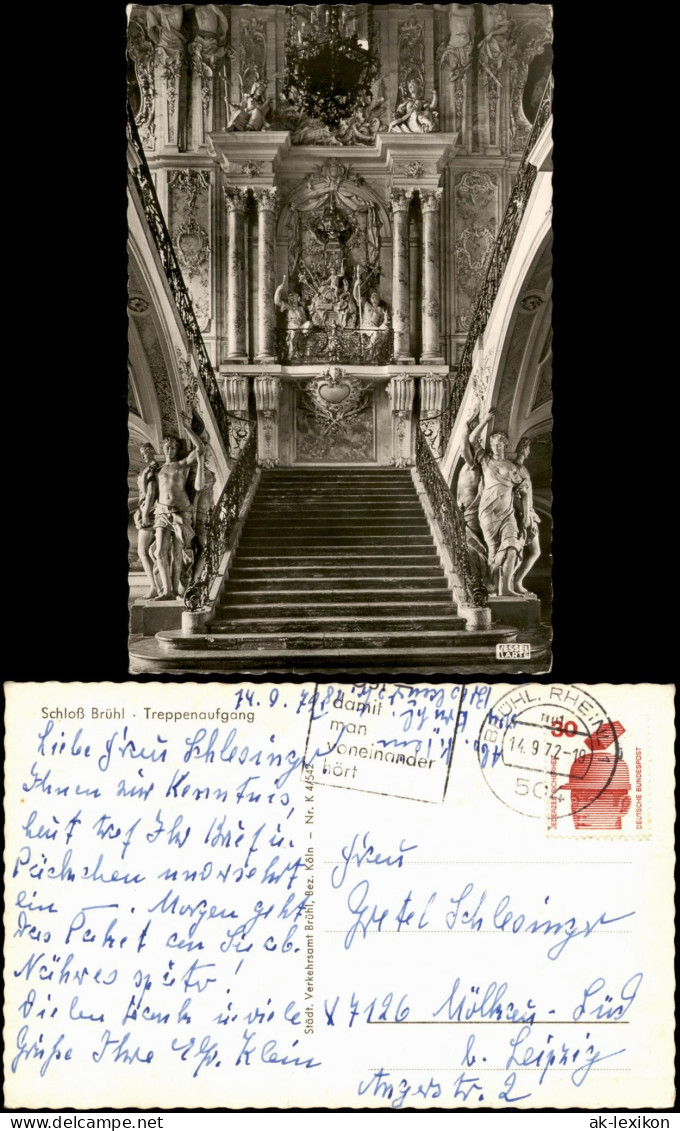 KESSEL
KARTE
Schloß Brühl · Treppenaufgang
14. 9. 72
damit
man
voneinander
hört
BRÜHL, RHEINL 1
14.9.72-19
504
30
JEDERZEIT SICHERHEIT
DEUTSCHE BUNDESPOST
Liebe Frau Schlesinger
Ihnen zur Kenntnis,
heut traf Ihr Brief u.
Päckchen unversehrt
ein — . Morgen geht
das Paket an Sie ab.
Näheres später!
Vielen Dank u. viele
Grüße Ihre Klein
Städt. Verkehrsamt Brühl, Bez. Köln — Nr. K 4/542
Frau
Gretel Schlesinger
X 7126 Mölkau-Süd
b. Leipzig
Angerstr. 2
ak-lexikon.com